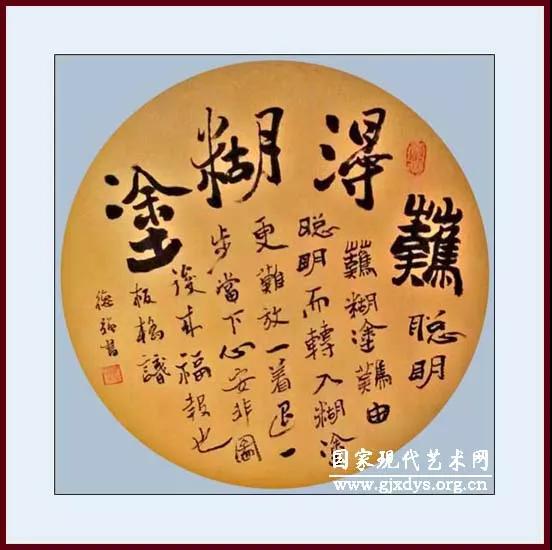 難得糊塗
聪明
難糊塗難由
聪明而轉入糊塗
更難放一着退一
步當下心安非圖
後来福報也
板橋識
德强書
国家现代艺术网
www.gjxdys.org.cn